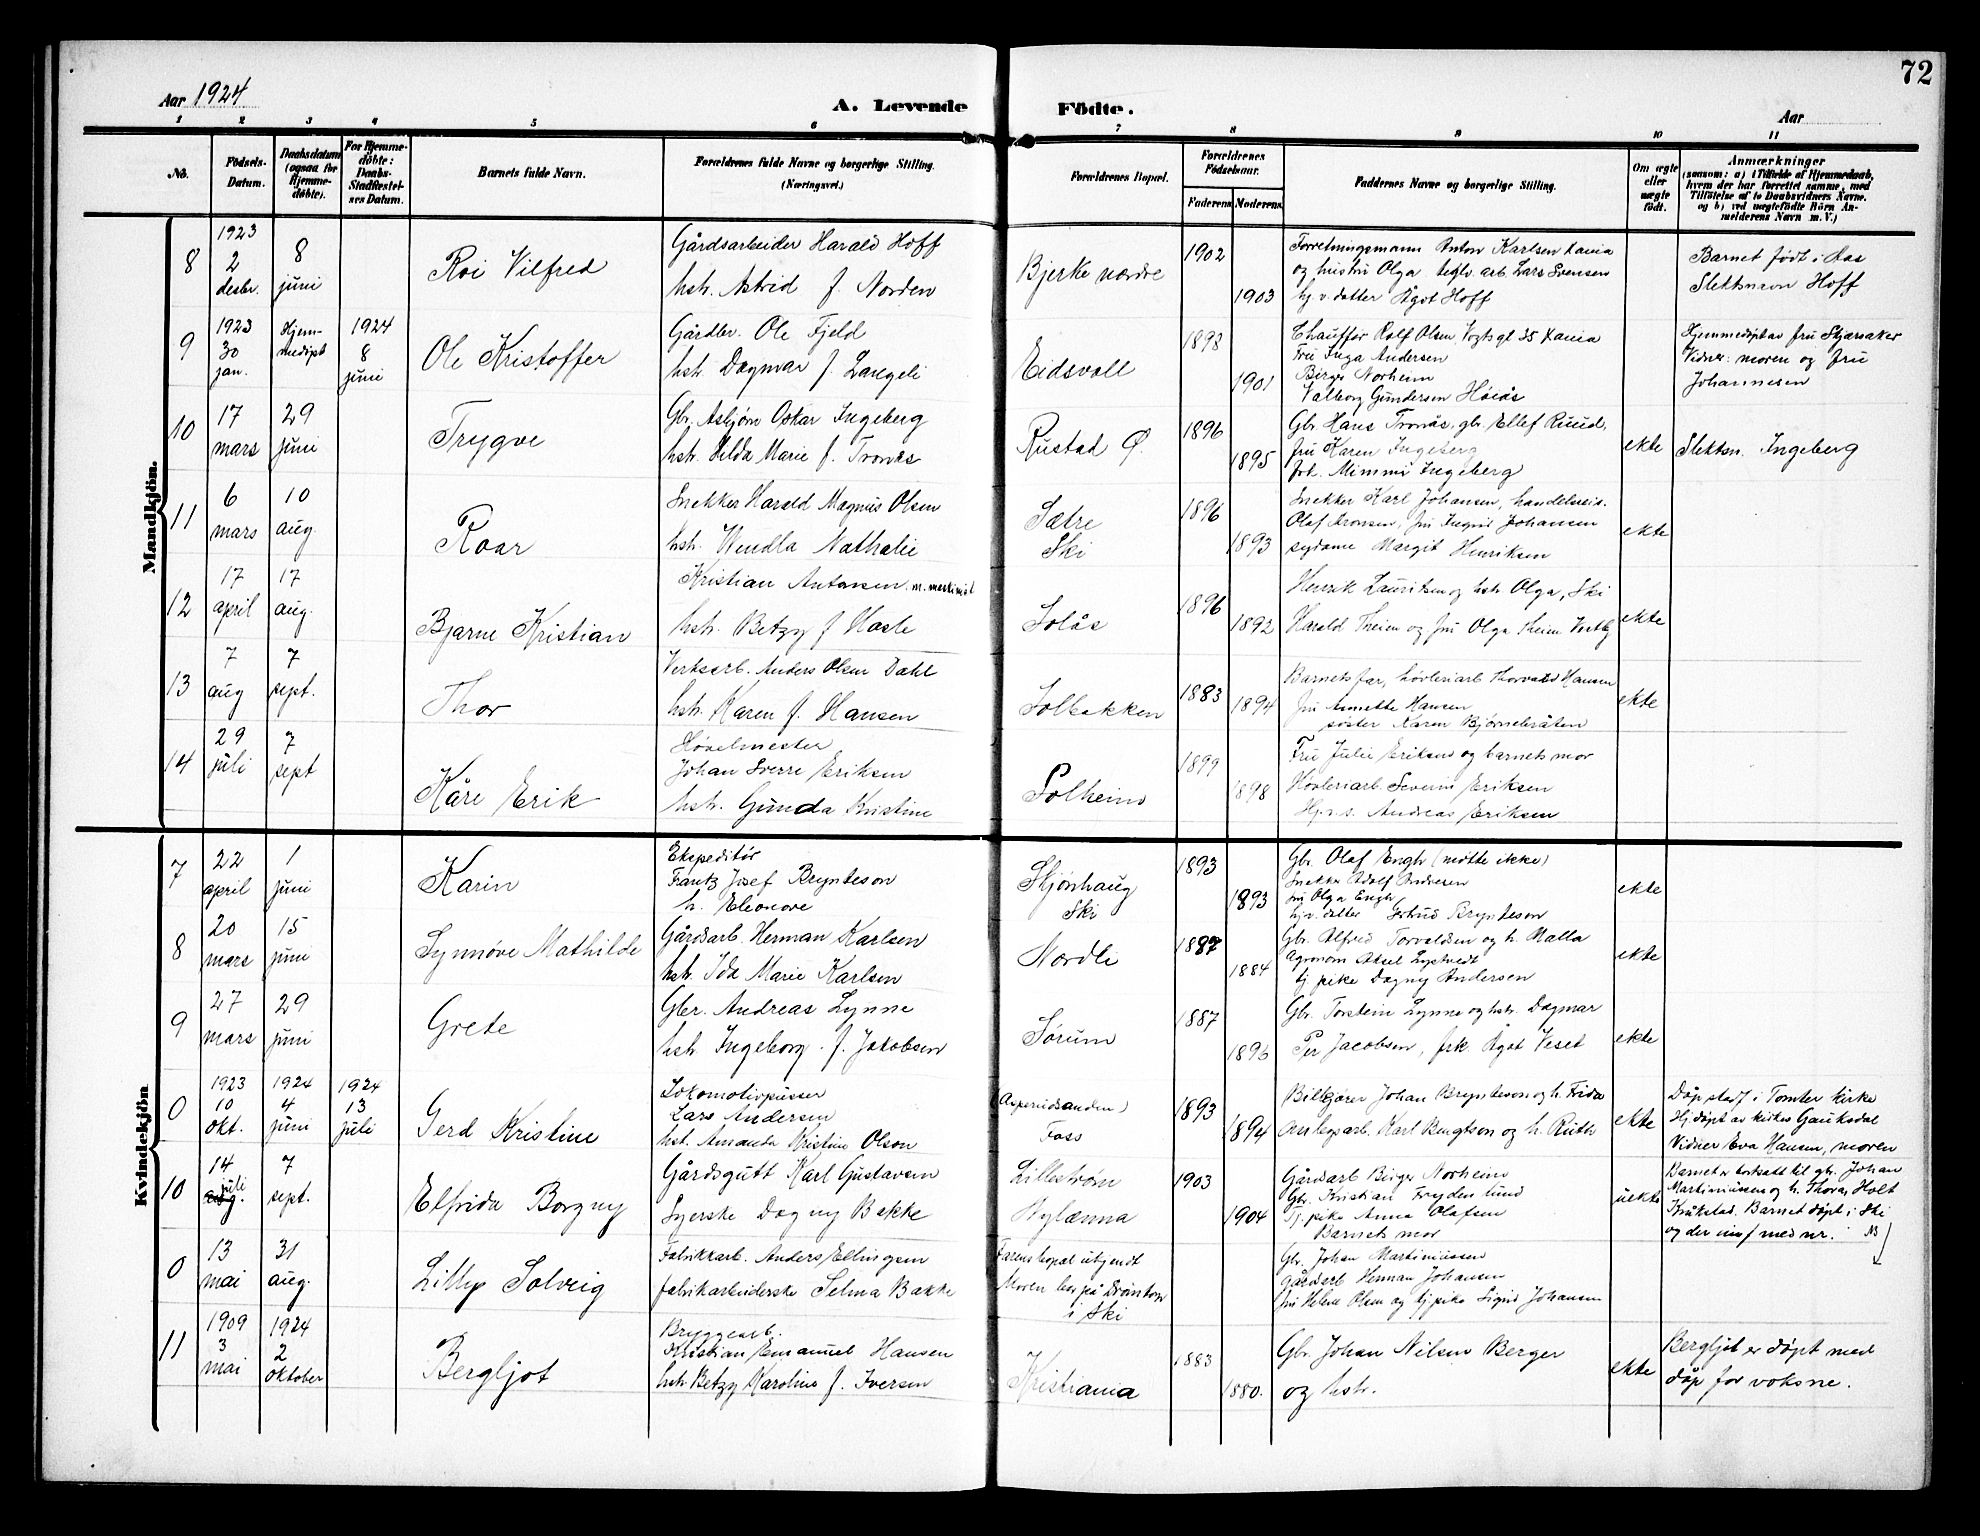 72
Aar 1924
A. Levende Födte.
Aar
1 2 3 4 5 6 7 8 9 10 11
No.
Födsels-Datum.
Daabsdatum (ogsaa for Hjemme-döbte).
For Hjemme-döbte: Daabs-Stadfæstel-ses Datum.
Barnets fulde Navn.
Forældrenes fulde Navne og borgerlige Stilling. (Næringsvei.)
Forældrenes Bopæl.
Forældrenes Födselsaar.
Faderens Moderens
Faddernes Navne og borgerlige Stilling.
Om ægte eller uægte födt.
Anmærkninger
(saasom: a) i Tilfælde af Hjemmedaab, hvem der har forrettet samme, med Tilföielse af to Daabsvidners Navne. og b) ved uægtefödte Börn An-melderens Navn m. V.)
Mandkjön.
8
1923 2 desbr.
8 juni
Roi Vilfred
Gårdsarbeider Harald Hoff
hstr. Astrid f. Norden
Bjerke nordre
1902
1903
Forretningsmann Anton Karlsen Kania
og hustru Olga teglv. arb. Lars Svensen
hj. v. datter Ågot Hoff
Barnet født i Aas
Slektsnavn Hoff
9
1923 30 jan.
Hjem-medøpt
1924 8 juni
Ole Kristoffer
Gårdbr. Ole Fjeld
hstr. Dagmar f. Langeli
Eidsvoll
1898
1901
Chauffør Rolf Olsen Vogtsgt 35 Kania
Fru Inga Andersen
Birger Norheim
Valborg Gundersen Høiås
Hjemmedøpt av fru Skjærsaker
Vidner: moren og fru
Johannesen
10
17 mars
29 juni
Trygve
Gbr. Asbjørn Oskar Ingeberg
hstr. Hilda Marie f. Tronås
Rustad Ø.
1896
1895
Gbr. Hans Tronås, gbr. Ellef Ruud,
fru Karen Ingeberg
frk. Mimmi Ingeberg
ekte
Slektsn. Ingeberg
11
6 mars
10 aug.
Roar
Snekker Harald Magnus Olsen
hstr. Wendla Nathalie
Sætre
Ski
1896
1893
Snekker Karl Johansen, handelsreis.
Olaf Aronsen, fru Ingrid Johansen
sydame Margit Henriksen
ekte
12
17 april
17 aug.
Bjarne Kristian
Kristian Antonsen m.
hstr. Betzy f Hasle
Solås
1896
1892
Henrik Lauritsen og hstr Olga, Ski
Harald Treim og fru Olga Treim Vestby
ekte
13
7 aug
7 sept.
Thor
Verksarb. Anders Olsen Dahl
hstr. Karen f. Hansen
Solbakken
1883
1894
Barnets far, høvleriarb Thorvald Hansen
fru Annette Hansen
søster Karen Bjørnebråten
ekte
14
29 juli
7 sept
Kåre Erik
Høvelmester
Johan Sverre Eriksen
hstr. Gunda Kristine
Solheim
1899
1898
Fru Julie Eriksen og barnets mor
Høvleriarb. Severin Eriksen
Hj.v.s. Andreas Eriksen
Kvindekjön
7
22 april
1 juni
Karin
Ekspeditør
Frantz Josef Brynteson
h. Eleonore
Skjønhaug
Ski
1893
1893
Gbr. Olaf Engh (møtte ikke)
Snekker Adolf Andresen
fru Olga Engh
hj.v. datter Gertrud Brynteson
ekte
8
20 mars
15 juni
Synnøve Mathilde
Gårdsarb. Herman Karlsen
hstr. Ida Marie Karlsen
Nordli
1887
1884
Gbr. Alfred Torvaldsen og h. Malla
Agronom Aksel Lystvedt
tj pike Dagny Andersen
ekte
9
27 mars
29 juni
Grete
Gbr. Andreas Lynne
hstr. Ingeborg f. Jakobsen
Sørum
1887
1896
Gbr. Torstein Lynne og hstr. Dagmar
Per Jacobsen, frk. Ågot Veset
ekte
0
1923 10 okt.
1924 4 juni
1924 13 juli
Gerd Kristine
Lokomotivpusser
Lars Andersen
hst. Amanda Kristine Olson
Foss
1893
1894
Bilkjører Johan Bryntesen og h. Frida
Anlegsarb. Karl Bengtson og h. Ruth
ekte
Dåp stedf i Tomter kirke
Hj.døpt av kirkes Gauksdal
Vidner Eva Hansen, moren
10
14 juli
7 sept.
Elfrida Borgny
Gårdsgutt Karl Gustavsen
Syerske Dagny Bakke
Lillestrøm
Hylænna
1903
1904
Gårdarb Birger Norheim
Gbr. Kristian Frydenlund
Tj. pike Anna Olafsen
Barnets mor
uekte
Barnet er bortsatt til gbr. Johan
Martiniussen og h. Thora, Holt
Kråkstad. Barnet døpt i Ski
og der innf med nr.
0
13 mai
31 aug.
Lilly Solveig
Fabrikkarb. Anders Ellingsen
fabrikarbeiderske Selma Bakke
Farens bopel ubkjendt
Moren bor på Drømtorp
i Ski
Gbr. Johan Martiniussen
gårdarb Herman Johansen
fru Helene Olsen og tj.pike Sigrid Johansen
11
1909 3 mai
1924 2 oktober
Bergljot
Bryggearb.
Kristian Emanuel Hansen
hstr Betzy Karoline f. Iversen
Kristiania
1883
1880.
Gbr. Johan Nilsen Berger
og hstr.
ekte
Bergljot er døpt med
dåp for voksne.